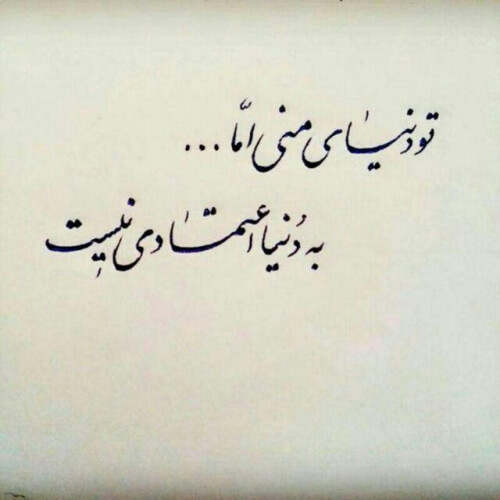 تو دنیای منی امّا...
به دُنیا اعتمادی نیست